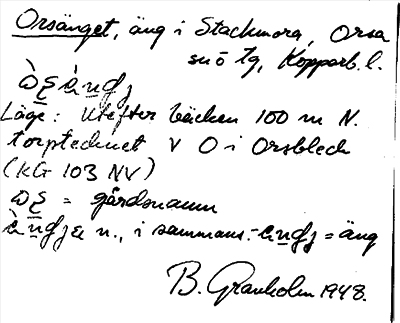 Orsänget, äng i Stackmora, Orsa
sn ö tg, Kopparb. l.
Läge: Utefter bäcken 100 m N.
torptecknet V O i Orsbleck
(KG 103 NV)
= gårdsnamn
n., i sammans. = äng
B. Granholm 1948.